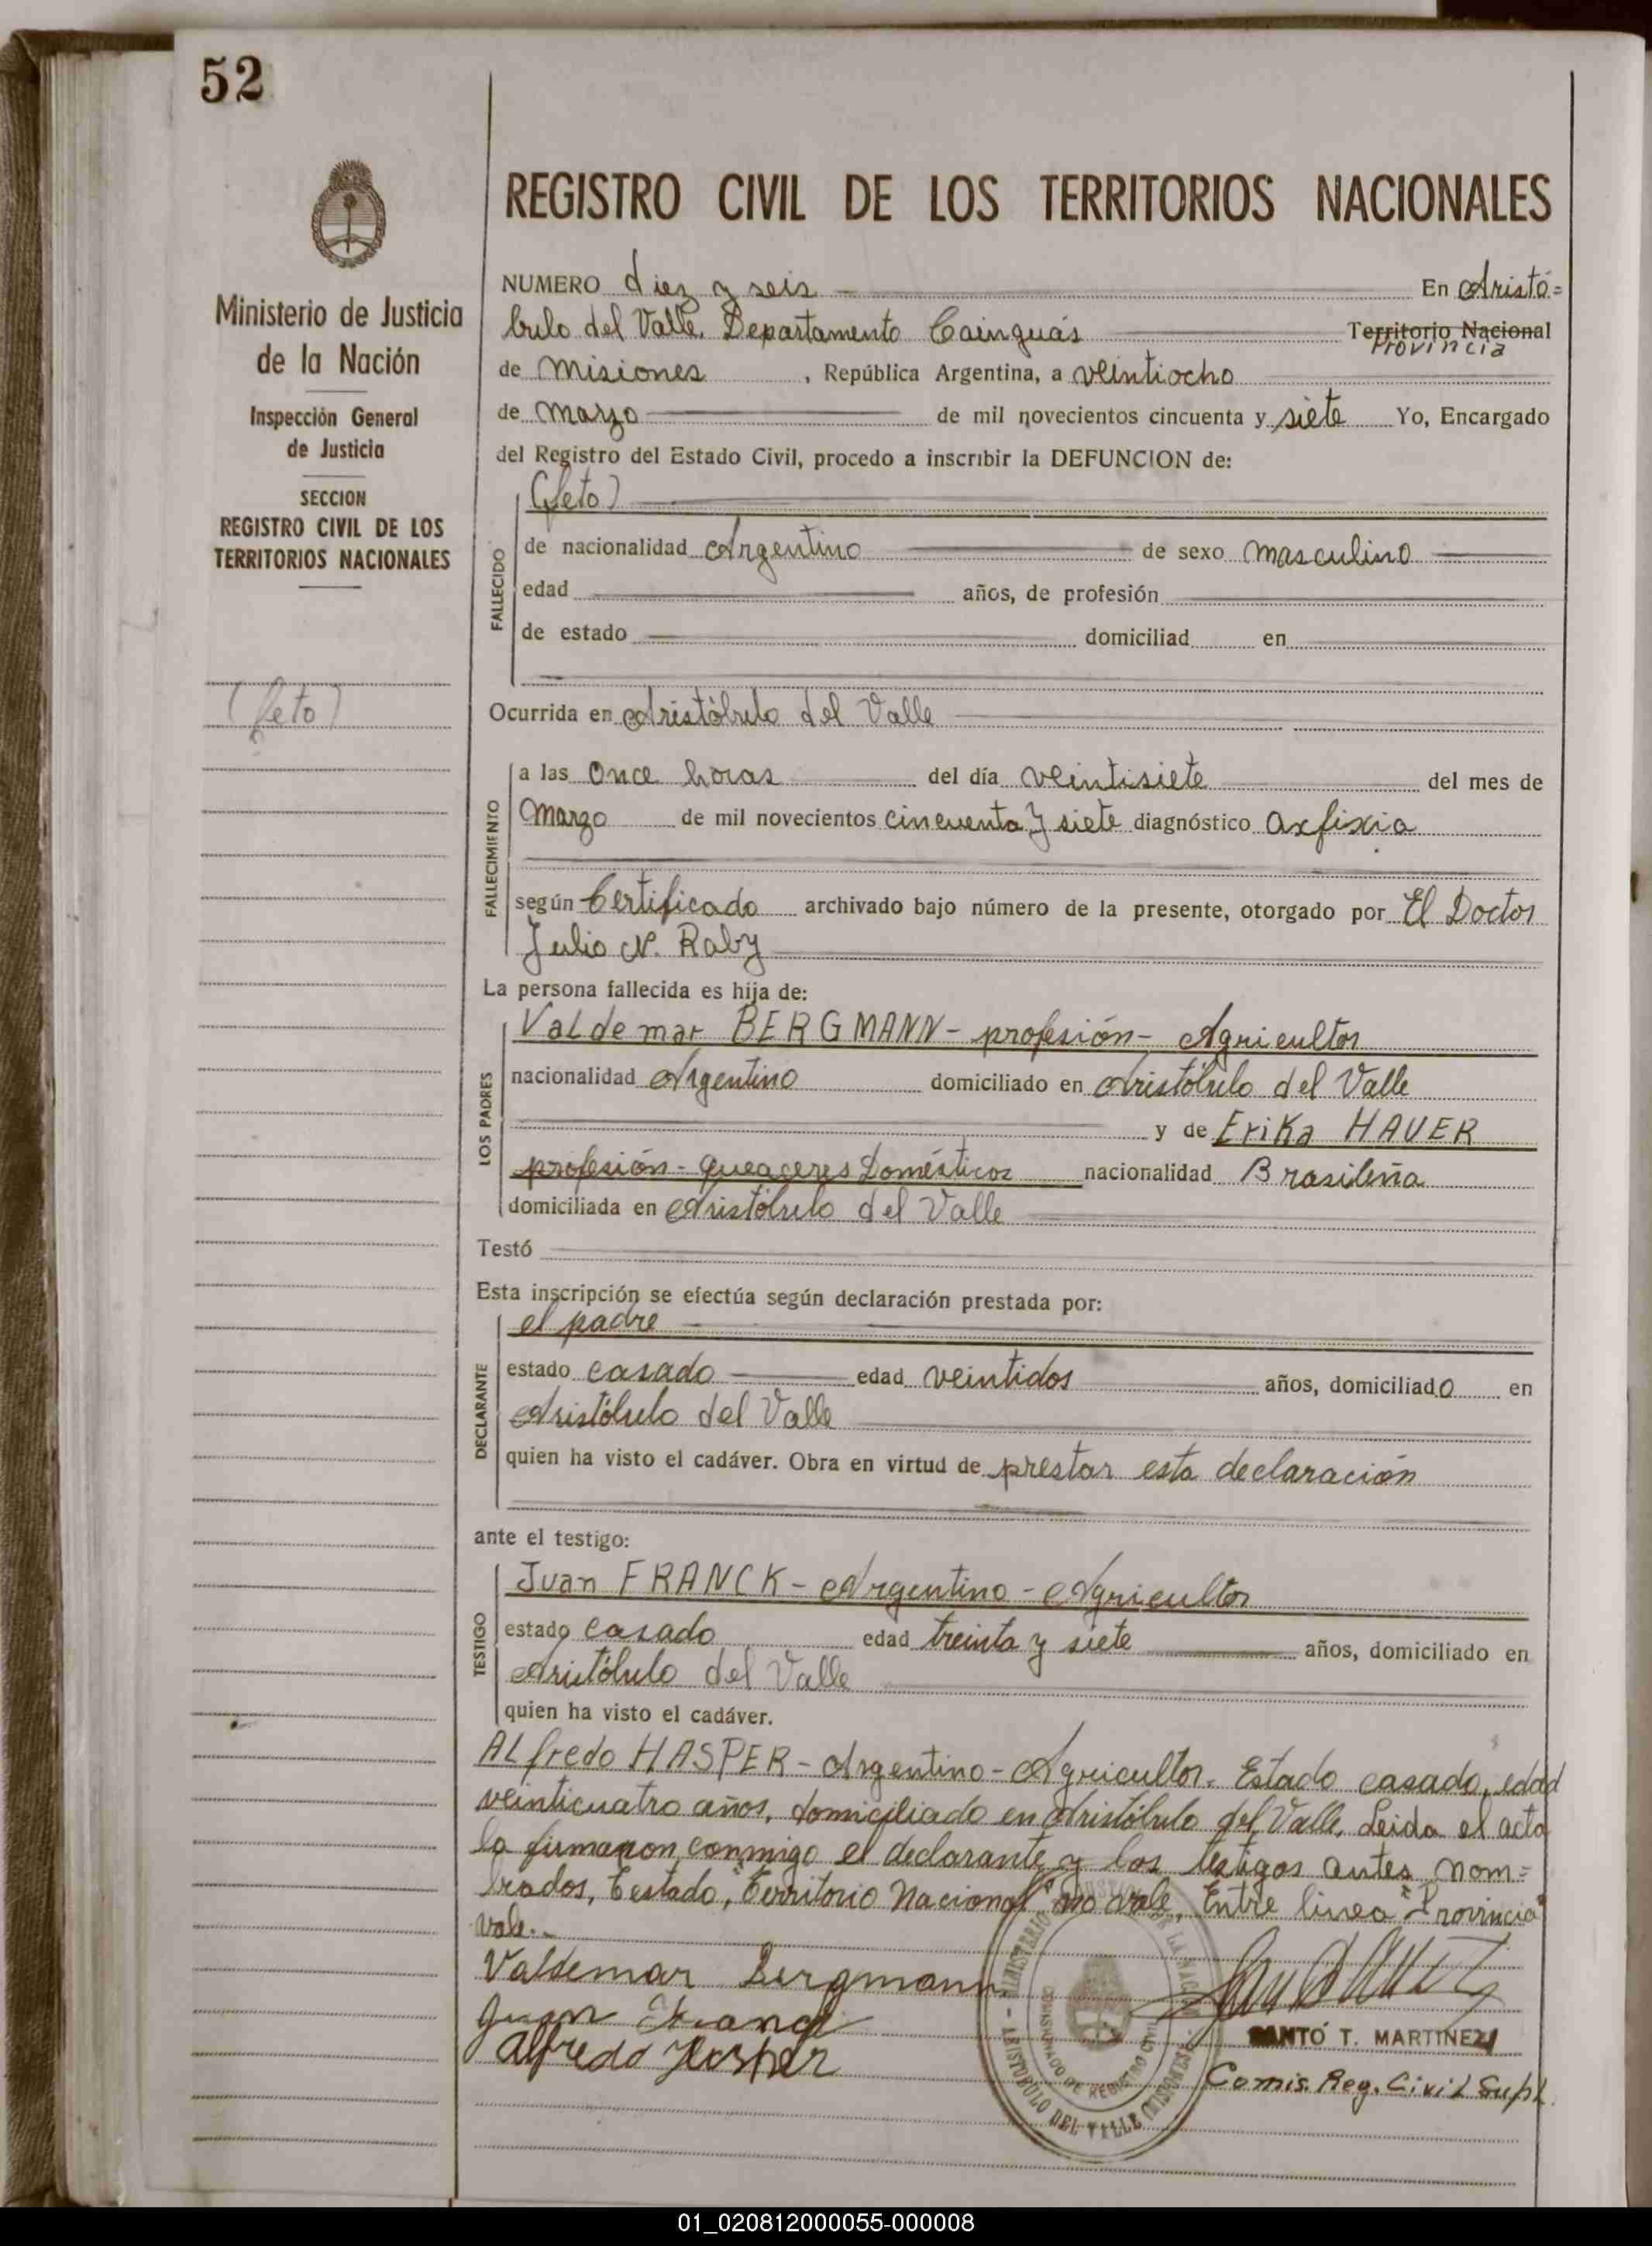 52
REGISTRO CIVIL DE LOS TERRITORIOS NACIONALES
Ministerio de Justicia
de la Nación
Inspección General
de Justicia
SECCION
REGISTRO CIVIL DE LOS
TERRITORIOS NACIONALES
(feto)
NUMERO diez y seis En Aristó=
bulo del Valle, Departamento Cainguás Territorio Nacional
Provincia
de Misiones, República Argentina, a veintiocho
de Marzo de mil novecientos cincuenta y siete Yo, Encargado
del Registro del Estado Civil, procedo a inscribir la DEFUNCION de:
(feto)
FALLECIDO
de nacionalidad Argentino de sexo masculino
edad años, de profesión
de estado domiciliad en
Ocurrida en Aristóbulo del Valle
FALLECIMIENTO
a las Once horas del día veintisiete del mes de
Marzo de mil novecientos cincuenta y siete diagnóstico axfixia
según Certificado archivado bajo número de la presente, otorgado por El Doctor
Julio N. Raby
La persona fallecida es hija de:
LOS PADRES
Valdemar BERGMANN - profesión - Agricultor
nacionalidad Argentino domiciliado en Aristóbulo del Valle
y de Erika HAUER
profesión - Queaceres Domésticos nacionalidad Brasileña
domiciliada en Aristóbulo del Valle
Testó
Esta inscripción se efectúa según declaración prestada por:
DECLARANTE
el padre
estado casado edad veintidos años, domiciliado en
Aristóbulo del Valle
quien ha visto el cadáver. Obra en virtud de prestar esta declaración
ante el testigo:
TESTIGO
Juan FRANCK - Argentino - Agricultor
estado casado edad treinta y siete años, domiciliado en
Aristóbulo del Valle
quien ha visto el cadáver.
Alfredo HASPER - Argentino - Agricultor. Estado casado, edad
veinticuatro años, domiciliado en Aristóbulo del Valle. Leida el acta
la firmaron conmigo el declarante y los testigos antes nom=
brados, Testado, "Territorio Nacional" no vale, Entre linea "Provincia"
vale.-
Valdemar Bergmann
Juan Franck
Alfredo Hasper
MINISTERIO DE JUSTICIA DE LA NACION
COMISARIADO DE REGISTRO CIVIL
ARISTOBULO DEL VALLE (MISIONES)
SANTO T. MARTINEZ
Comis. Reg. Civil Supl.
01_020812000055-000008